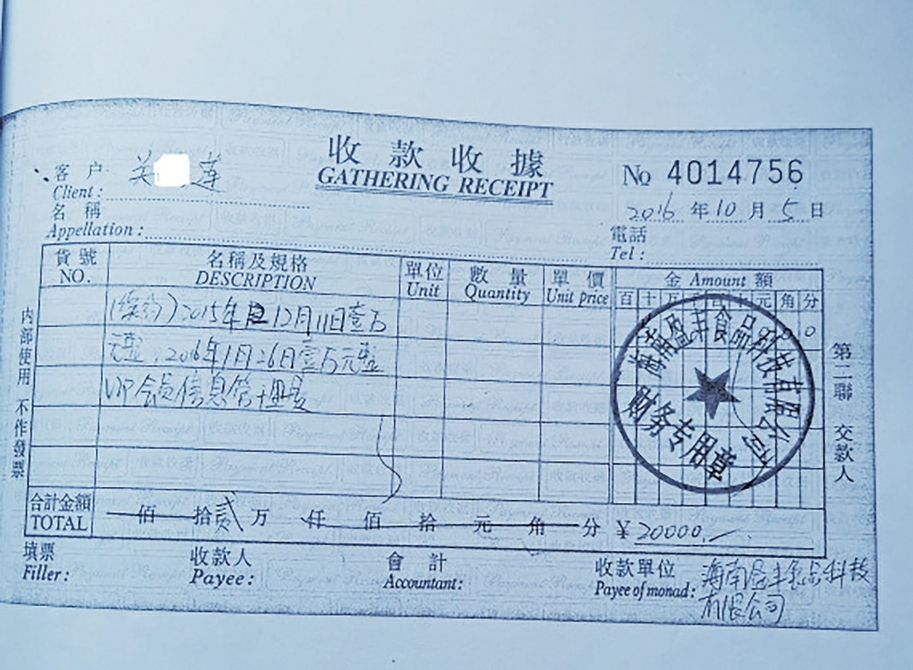 收款收據
GATHERING RECEIPT
№ 4014756
客户 关 莲
Client:
名稱
Appellation:
2016 年 10 月 5 日
電話
Tel:
貨號
NO.
名稱及規格
DESCRIPTION
單位
Unit
數量
Quantity
單價
Unit price
金 Amount 額
百 十 元 角 分
(续约) 2015年 12月11日壹万
元整，2016年1月26日壹万元整
VIP会员信息管理费
海南盈丰食品科技有限公司
财务专用章
合計金額
TOTAL
佰 拾 贰 万 仟 佰 拾 元 角 分 ¥ 20000.—
填票
Filler:
收款人
Payee:
會計
Accountant:
收款單位
Payee of monad:
海南盈丰食品科技
有限公司
内部使用 不作發票
第二聯 交款人